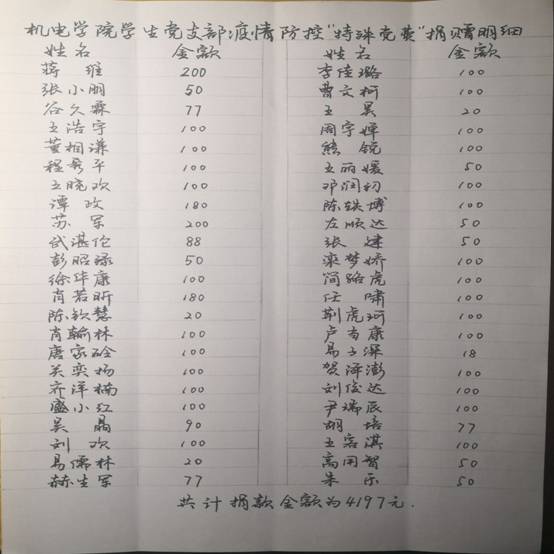 机电学院学生党支部疫情防控"特殊党费"捐赠明细
姓名 金额 姓名 金额
蒋维 200 李佳璐 100
张小朋 50 曹文柯 100
谷久霖 77 王昊 20
王浩宇 100 周宇婵 100
董相谦 100 熊锐 100
程秀平 100 王丽媛 50
王晓欢 100 邓润初 100
谭政 180 陈轶博 100
苏军 200 左顺达 50
武湛伦 88 张建 50
彭昭禄 50 栾梦娇 100
徐华康 100 简路虎 100
肖若昕 180 任啸 100
陈钦慧 20 荆虎珂 100
肖翰林 100 卢奇康 100
唐家岭 100 易子深 18
关奕杨 100 贺泽澎 100
齐洋楠 100 刘俊达 100
盛小红 100 尹瑞辰 100
吴晶 90 胡培 77
刘欢 100 王容淇 100
易儒林 20 高用智 50
赫生军 77 朱乐 50
共计捐款金额为4197元.